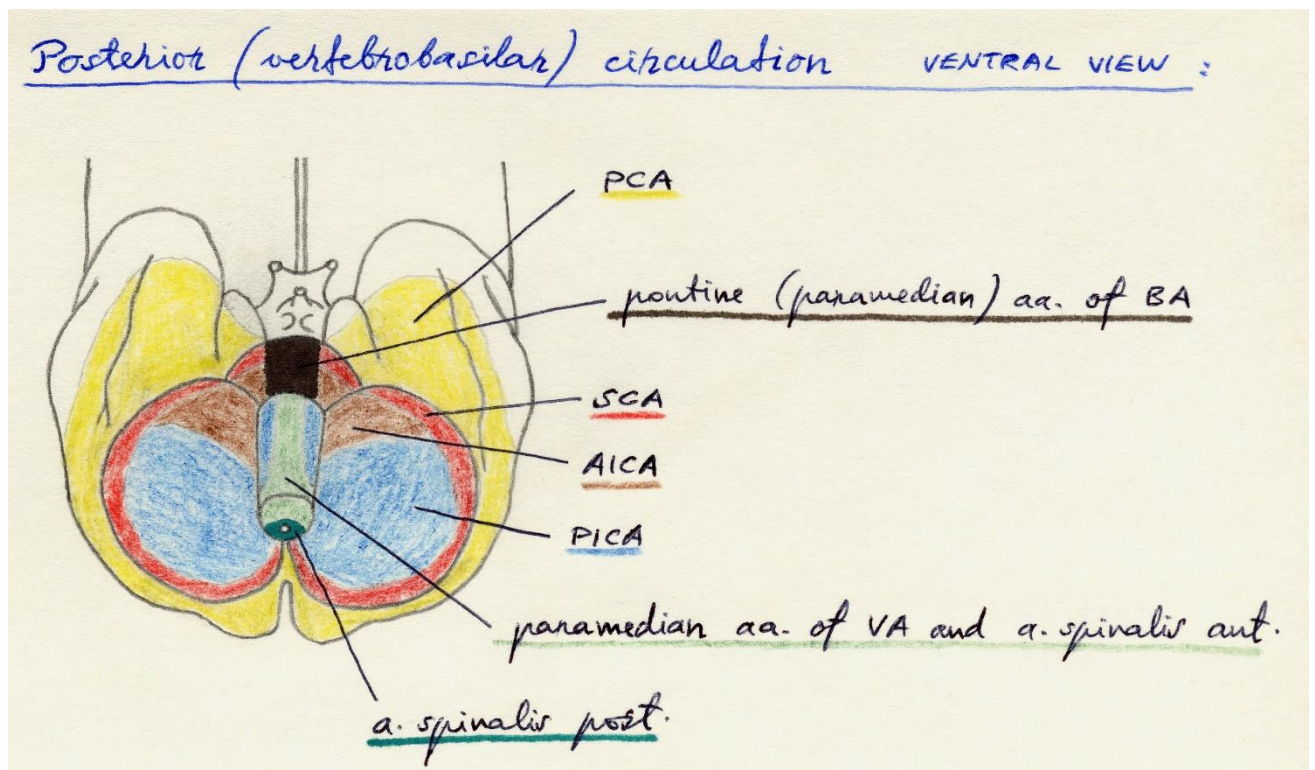 Posterior (vertebrobasilar) circulation VENTRAL VIEW :
PCA
pontine (paramedian) aa. of BA
SCA
AICA
PICA
paramedian aa. of VA and a. spinalis ant.
a. spinalis post.